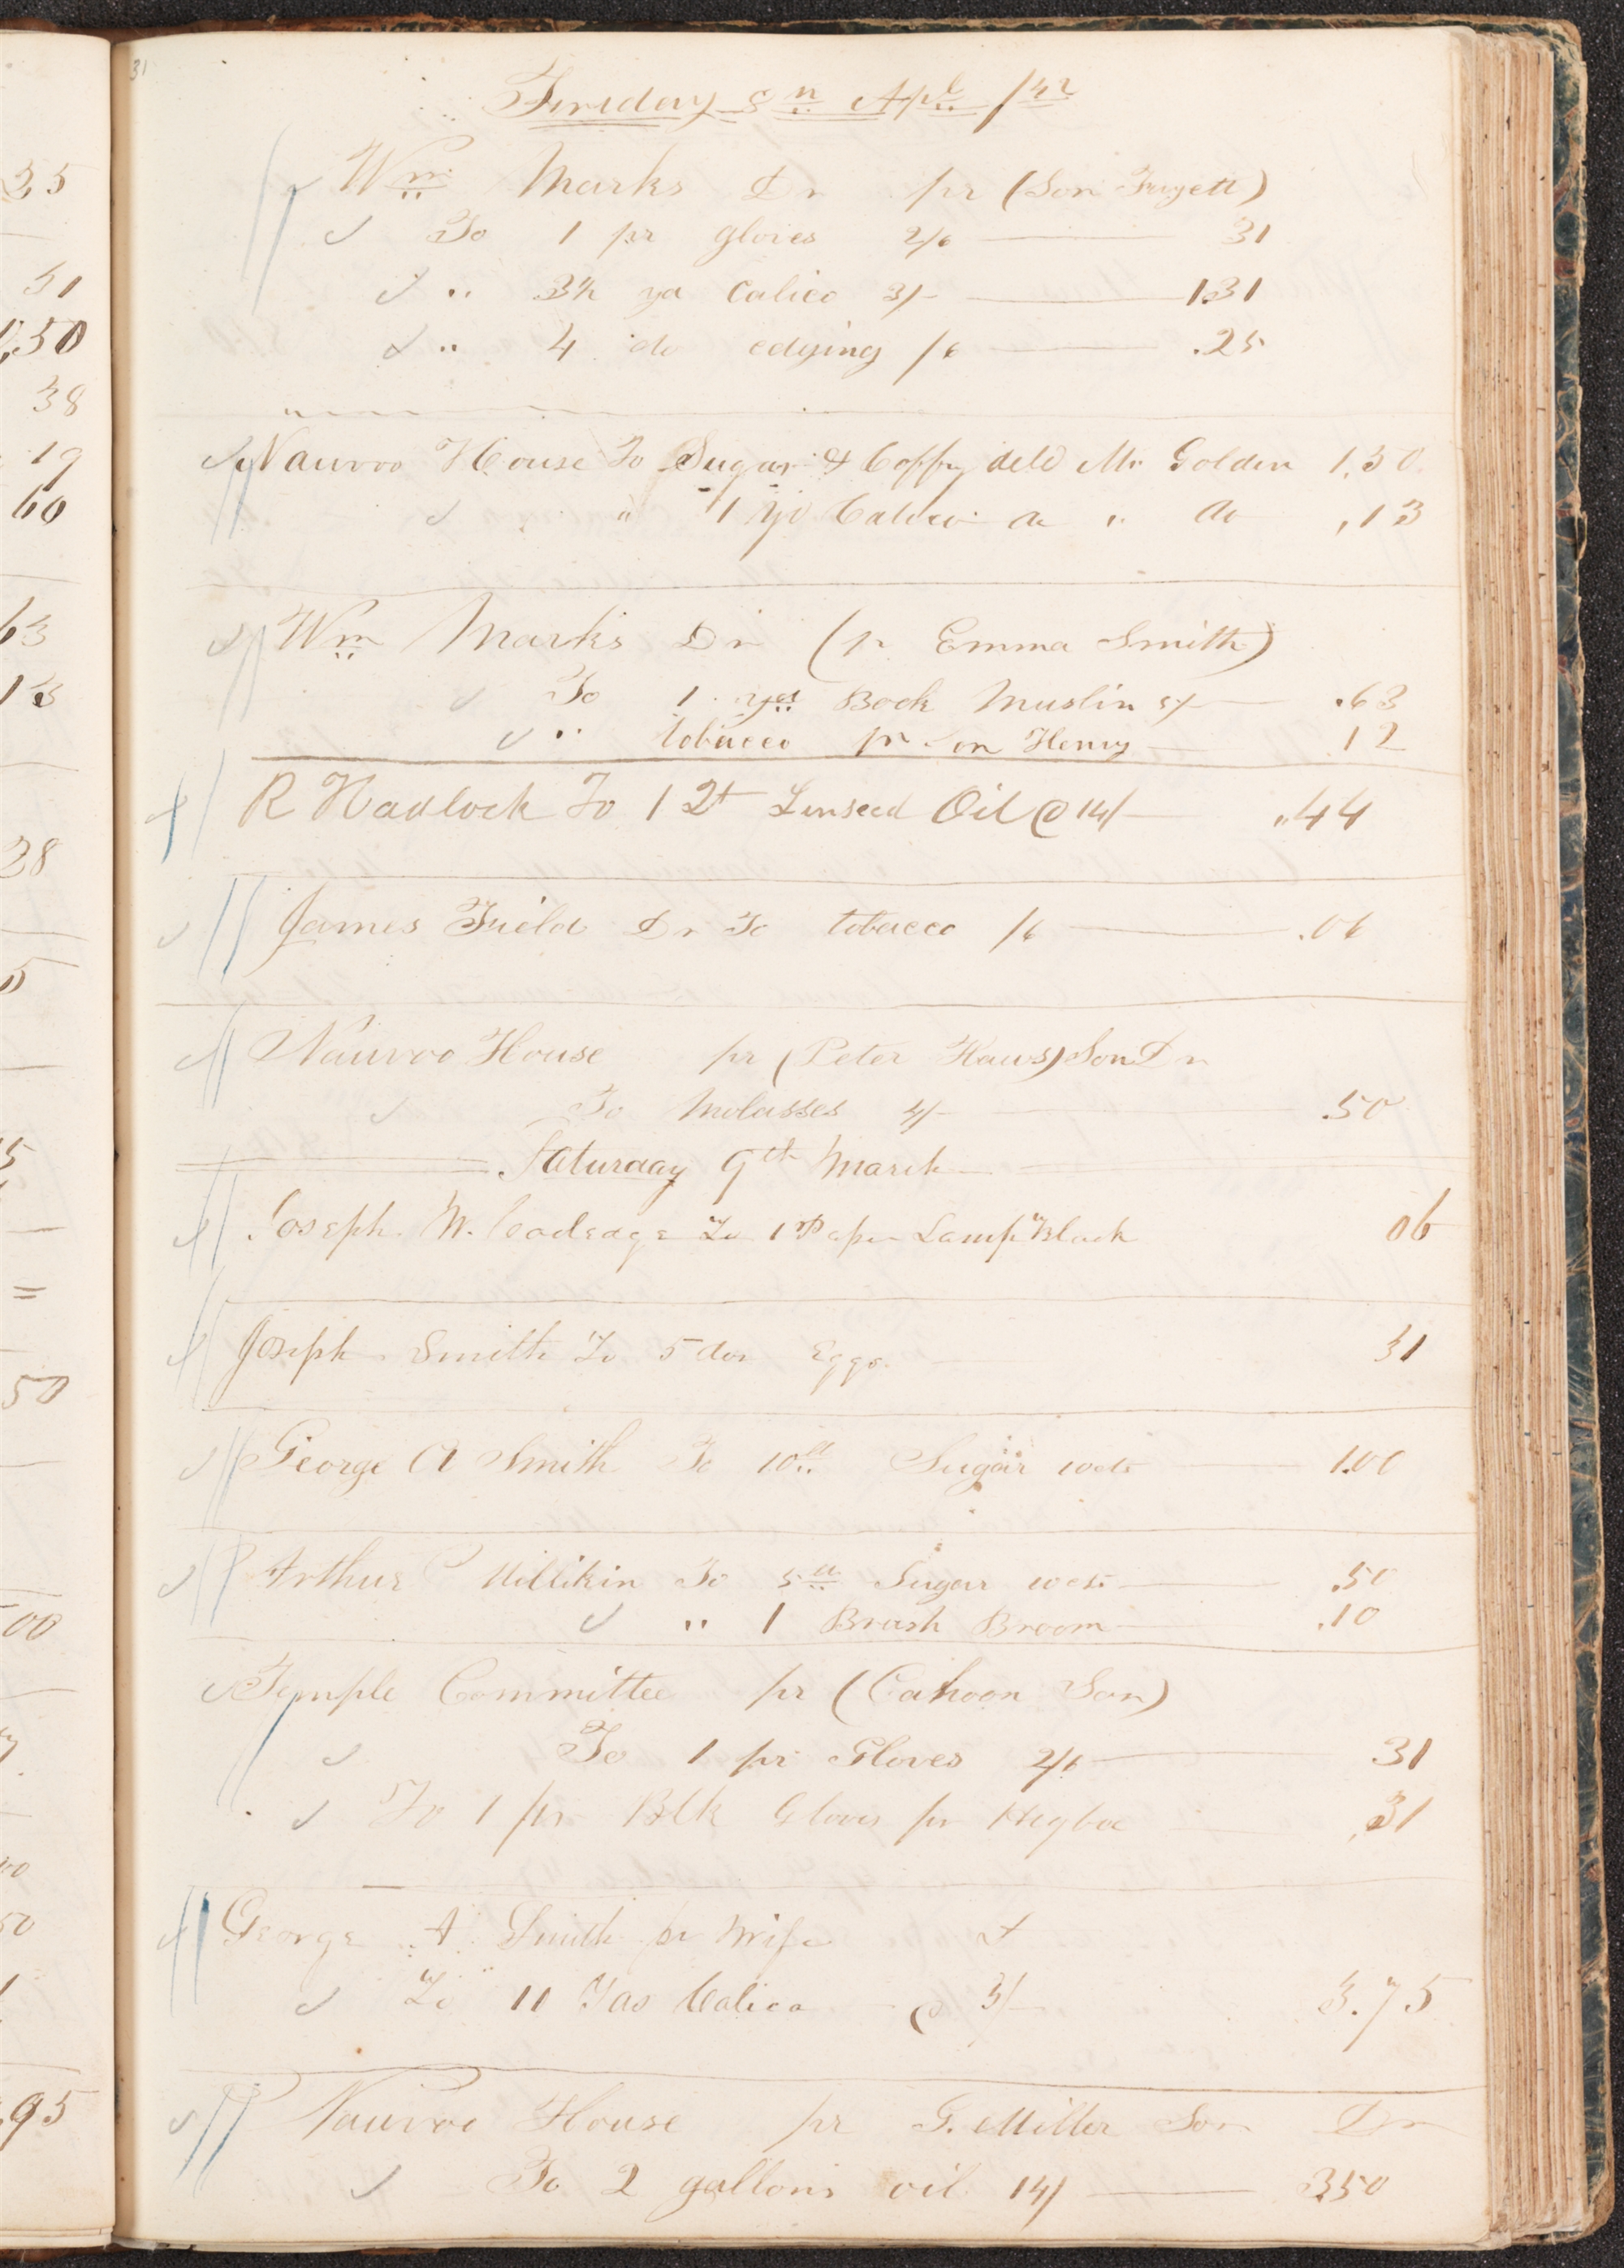 31
35
31
1,50
38
19
60
63
13
28
50
00
50
95
Friday 8th Apl /42
Wm Marks Dr pr (Son Fuyett)
To 1 pr gloves 2/6 31
" 3½ yd Calico 3/- 1.31
" 4 do edging /6 .25
Nauvoo House To Sugar & Coffy deld Mr Golden 1,50
" 1 yd Calico do " do ,13
Wm Marks Dr (pr Emma Smith)
To 1 yd Book Muslin 5/- .63
" tobacco pr Son Henry 12
R Hadlock To 1 Qt Linseed Oil @ 14/- .44
James Field Dr To tobacco /6 .06
Nauvoo House pr (Peter Haws) Son Dr
To Molasses 4/- .50
Saturday 9th March
Joseph W. To 1 Paper Lamp Black 06
Joseph Smith To 5 doz Eggs. 31
George A Smith To 10lb Sugar 10cts 1.00
Arthur Millikin To 5lb Sugar 10cts .50
" 1 Brush Broom .10
Temple Committee pr (Cahoon Son)
To 1 pr Gloves 2/6 31
To 1 pr Blk Gloves pr Higbee .31
George A Smith pr Wife
To 11 Yds Calico @ 3/- 3.75
Nauvoo House pr G. Miller Son Dr
To 2 gallons oil 14/ 3.50